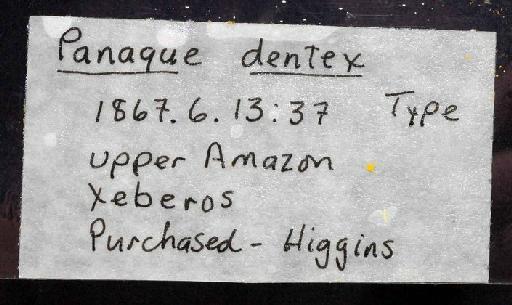 Panaque dentex
1867.6.13:37 Type
upper Amazon
Xeberos
Purchased - Higgins